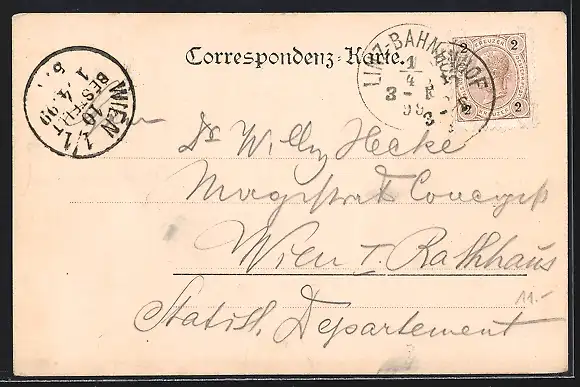 Correspondenz-Karte.
LINZ-BAHNHOF
1
4
3-
99
2
2
2
2
KREUZER
WIEN 1/1
BESTELLT
10
1 4 99
Dr Willy Hecke
Magistrat Concept
Wien I. Rathhaus
11.-
Statist. Departement